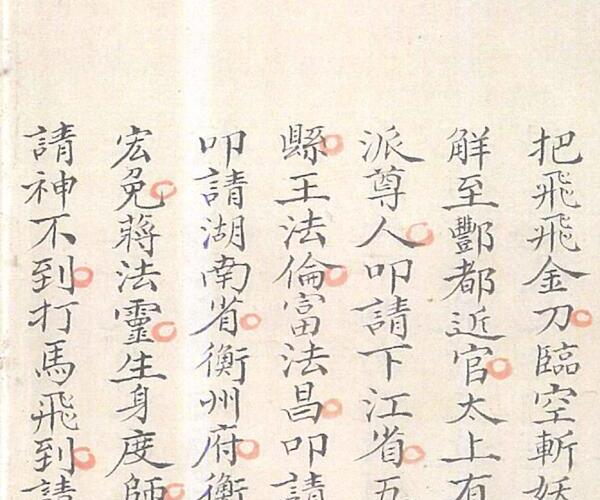 把飛飛金刀臨空斬妖
解至酆都近官太上有
派尊人叩請下江省五
縣王法倫富法昌叩請
叩請湖南省衡州府衡
宏免蔣法靈生身度師
請神不到打馬飛到請